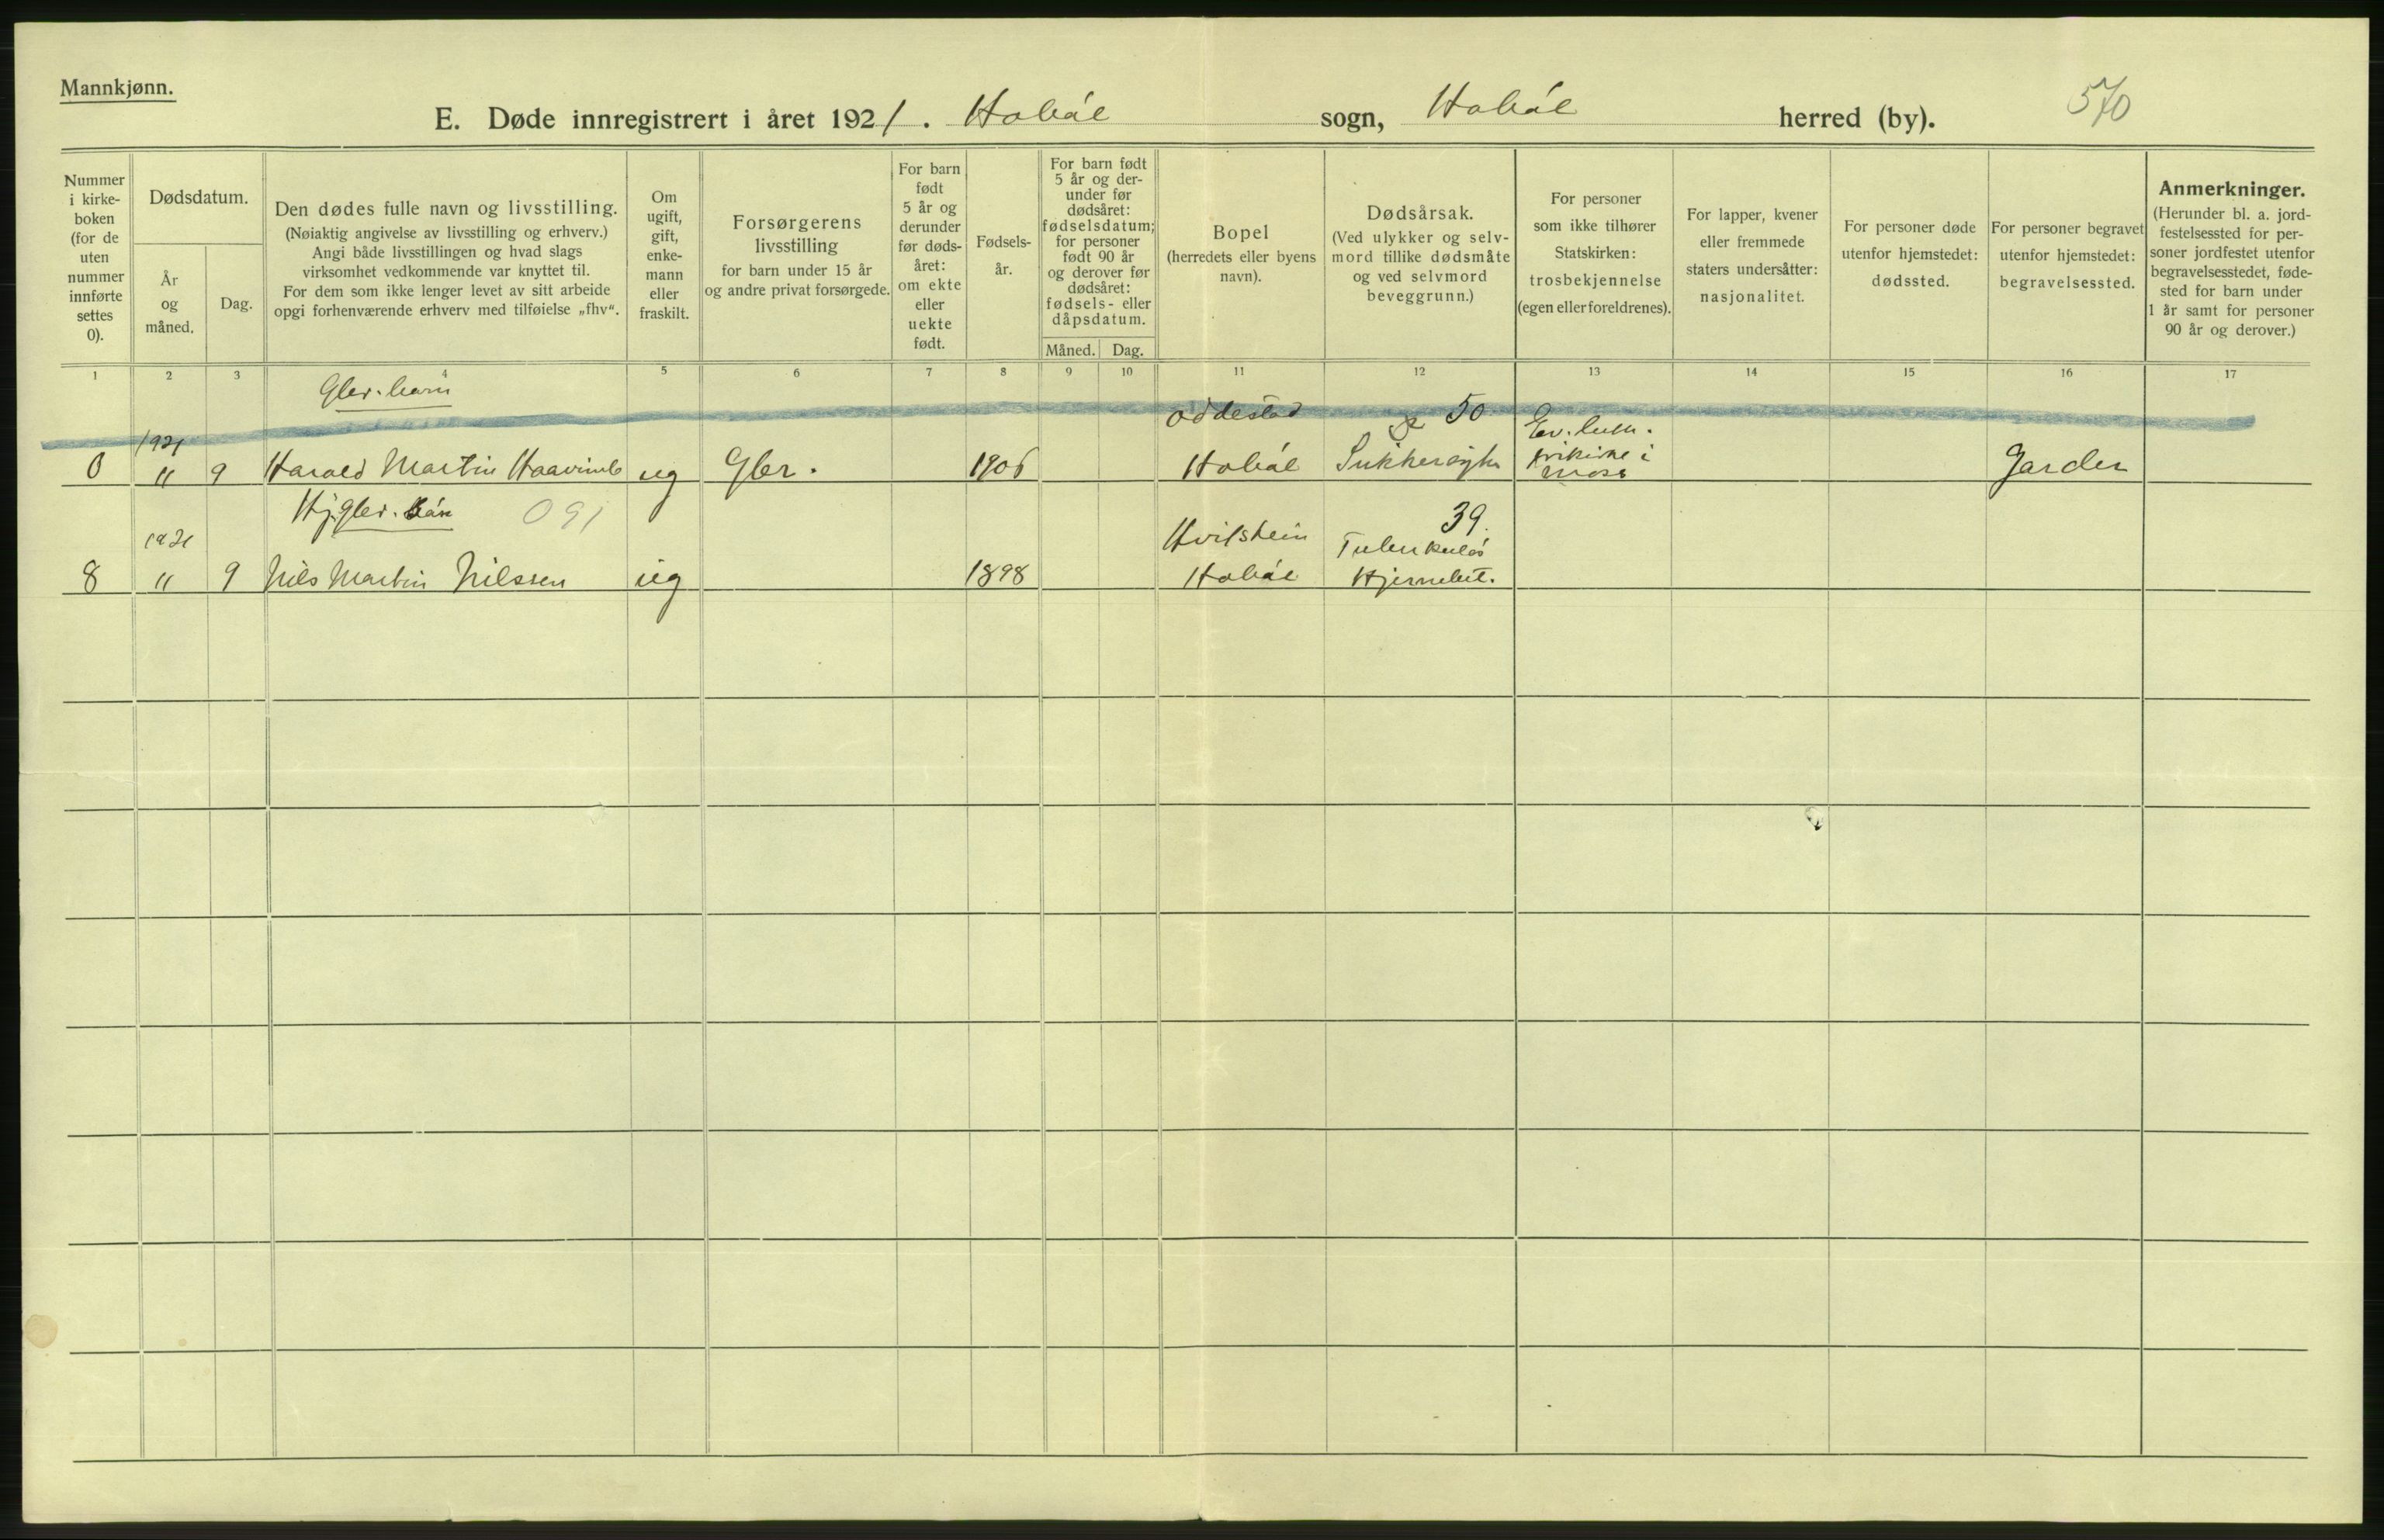 Mannkjønn.
E. Døde innregistrert i året 1921. Hobøl sogn, Hobøl herred (by). 570
Nummer
i kirke-
boken
(for de
uten
nummer
innførte
settes
0).
Dødsdatum.
År
og
måned.
Dag.
Den dødes fulle navn og livsstilling.
(Nøiaktig angivelse av livsstilling og erhverv.)
Angi både livsstillingen og hvad slags
virksomhet vedkommende var knyttet til.
For dem som ikke lenger levet av sitt arbeide
opgi forhenværende erhverv med tilføielse „fhv“.
Om
ugift,
gift,
enke-
mann
eller
fraskilt.
Forsørgerens
livsstilling
for barn under 15 år
og andre privat forsørgede.
For barn
født
5 år og
derunder
før døds-
året:
om ekte
eller
uekte
født.
Fødsels-
år.
For barn født
5 år og der-
under før
dødsåret:
fødselsdatum;
for personer
født 90 år
og derover før
dødsåret:
fødsels- eller
dåpsdatum.
Måned. Dag.
Bopel
(herredets eller byens
navn).
Dødsårsak.
(Ved ulykker og selv-
mord tillike dødsmåte
og ved selvmord
beveggrunn.)
For personer
som ikke tilhører
Statskirken:
trosbekjennelse
(egen eller foreldrenes).
For lapper, kvener
eller fremmede
staters undersåtter:
nasjonalitet.
For personer døde
utenfor hjemstedet:
dødssted.
For personer begravet
utenfor hjemstedet:
begravelsessted.
Anmerkninger.
(Herunder bl. a. jord-
festelsessted for per-
soner jordfestet utenfor
begravelsesstedet, føde-
sted for barn under
1 år samt for personer
90 år og derover.)
1 2 3 4 5 6 7 8 9 10 11 12 13 14 15 16 17
Gbr. barn
Oddestad 50
1921 Ev. luth.
frikirke i
Moss
0 " 9 Harald Martin ug Gbr. 1906 Hobøl Garder
091
39.
1921 Hvitstein
8 " 9 Nils Martin Nilssen ug 1898 Hobøl Hjernebet.